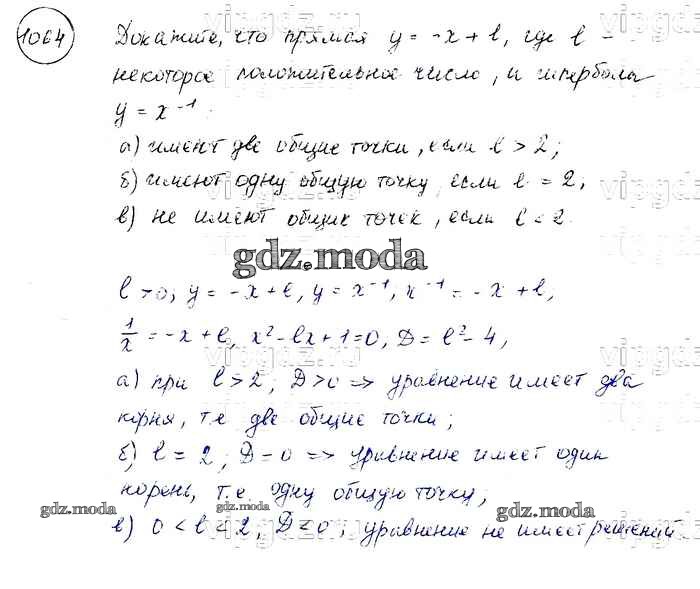 1064
Докажите, что прямая y = -x + l, где l -
некоторое положительное число, и гипербола
y = x⁻¹
а) имеют две общие точки, если l > 2;
б) имеют одну общую точку, если l = 2;
в) не имеют общих точек, если l < 2
gdz.moda
l > 0, y = -x + l, y = x⁻¹, x⁻¹ = -x + l,
1/x = -x + l, x² - lx + 1 = 0, D = l² - 4,
а) при l > 2, D > 0 => уравнение имеет два
корня, т.е две общие точки;
б) l = 2, D = 0 => уравнение имеет один
корень, т.е. одну общую точку;
gdz.moda gdz.moda
в) 0 < l < 2, D < 0; уравнение не имеет решений